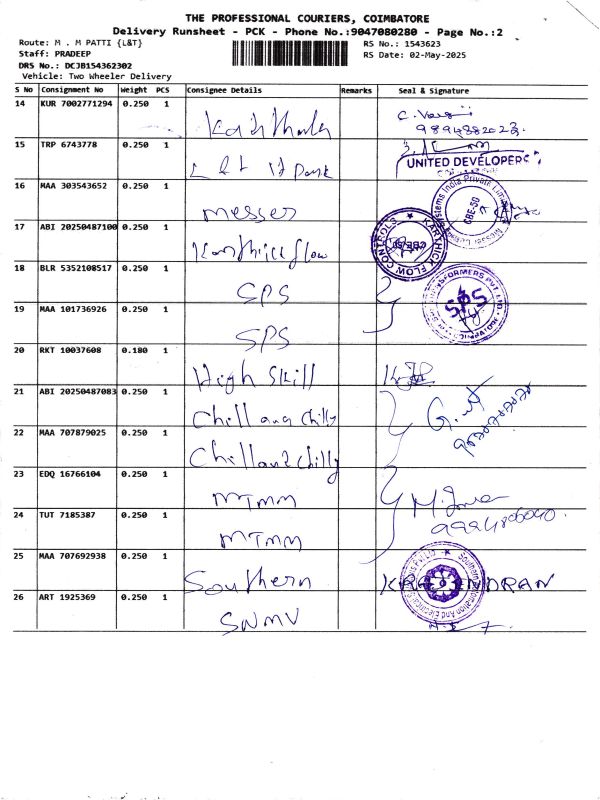 THE PROFESSIONAL COURIERS, COIMBATORE
Delivery Runsheet - PCK - Phone No.:9047080280 - Page No.:2
Route: M . M PATTI {L&T}
RS No.: 1543623
Staff: PRADEEP
RS Date: 02-May-2025
DRS No.: DCJB154362302
Vehicle: Two Wheeler Delivery
S No Consignment No Weight PCS Consignee Details Remarks Seal & Signature
14 KUR 7002771294 0.250 1
15 TRP 6743778 0.250 1 L&t It Park UNITED DEVELOPERS
16 MAA 303543652 0.250 1 messer
17 ABI 20250487100 0.250 1 Karthick flow KARTHICK FLOW CONTROLS
18 BLR 5352108517 0.250 1 SPS SPS
19 MAA 101736926 0.250 1 SPS
20 RKT 10037608 0.180 1 High Skill
21 ABI 20250487083 0.250 1 Chill ana chilly
22 MAA 707879025 0.250 1 Chillana chilly
23 EDQ 16766104 0.250 1 MTMM
24 TUT 7185387 0.250 1 MTMM
25 MAA 707692938 0.250 1 Southern
26 ART 1925369 0.250 1 SNMV